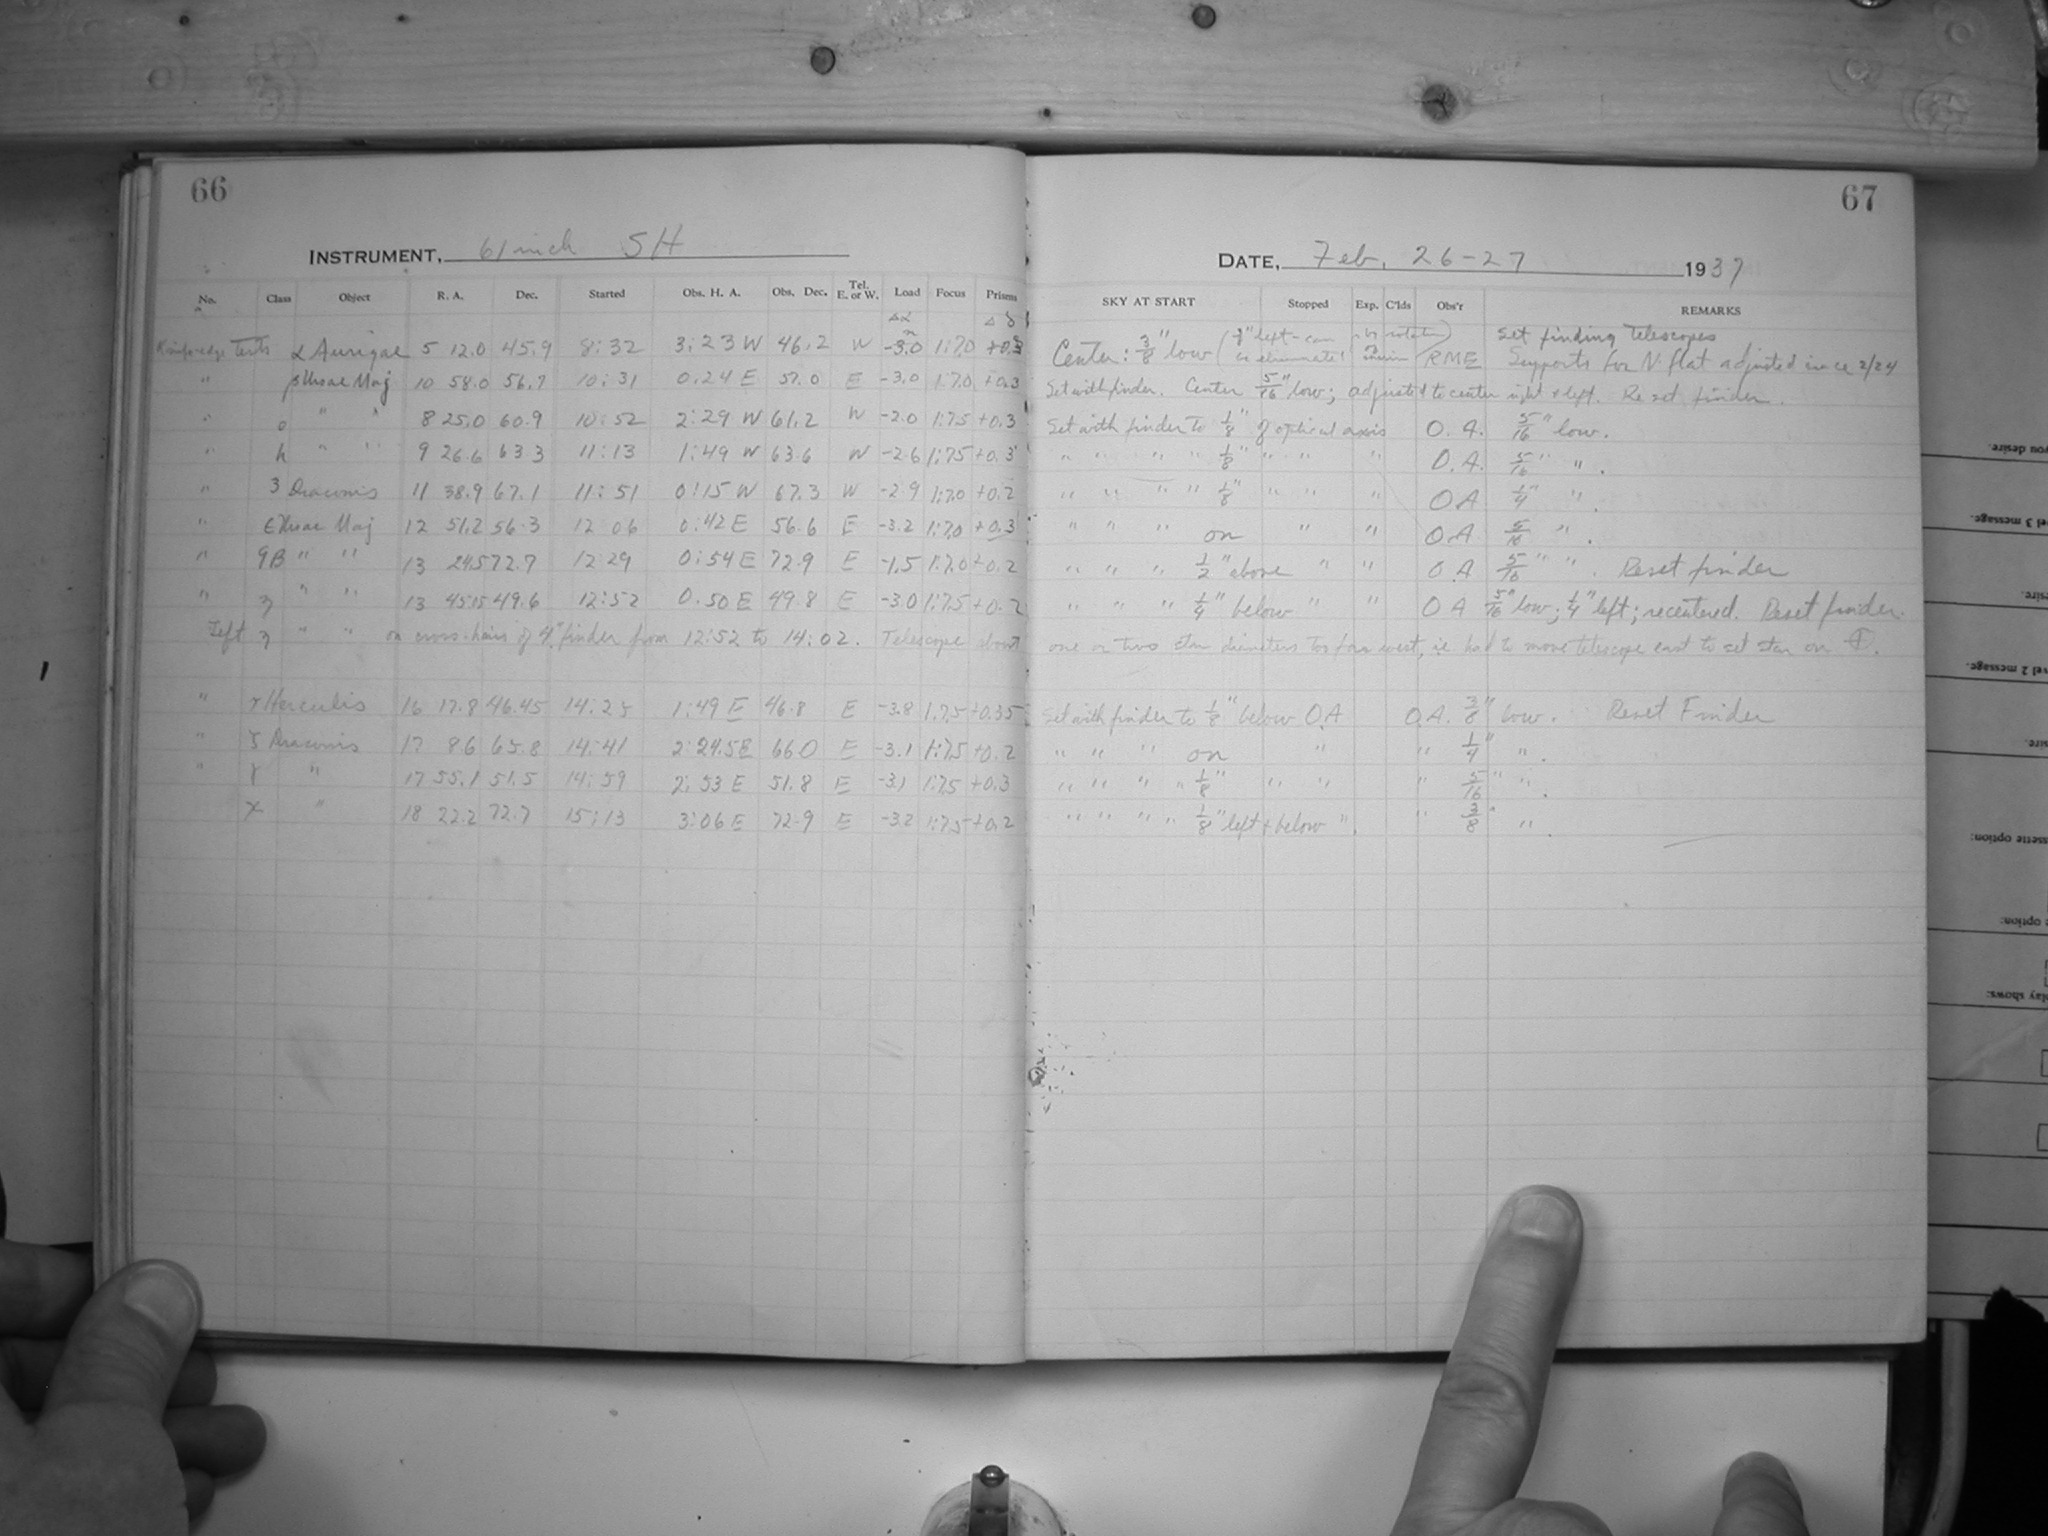 66
INSTRUMENT, 61 inch SH
No. Class Object R. A. Dec. Started Obs. H. A. Obs. Dec. Tel. E. or W. Load Focus Prisms
Knife-edge tests α Aurigae 5 12.0 45.9 8:32 3:23 W 46.2 W -3.0 1:70 +0.3
" β Ursae Maj 10 58.0 56.7 10:31 0:24 E 57.0 E -3.0 1:70 +0.3
" o " " 8 25.0 60.9 10:52 2:29 W 61.2 W -2.0 1:75 +0.3
" h " " 9 26.6 63.3 11:13 1:49 W 63.6 W -2.6 1:75 +0.3
" 3 Draconis 11 38.9 67.1 11:51 0:15 W 67.3 W -2.9 1:70 +0.2
" ε Ursae Maj 12 51.2 56.3 12 06 0:42 E 56.6 E -3.2 1:70 +0.3
" 9B " " 13 24.5 72.7 12 29 0:54 E 72.9 E -1.5 1:70 +0.2
" η " " 13 45.15 49.6 12:52 0.50 E 49.8 E -3.0 1:75 +0.2
Left η " " on cross-hairs of 4" finder from 12:52 to 14:02. Telescope about
" τ Herculis 16 17.8 46.45 14:25 1:49 E 46.8 E -3.8 1.75 +0.35
" ζ Draconis 17 8.6 65.8 14:41 2:24.5 E 66.0 E -3.1 1:75 +0.2
" γ " 17 55.1 51.5 14:59 2:53 E 51.8 E -3.1 1:75 +0.3
χ " 18 22.2 72.7 15:13 3:06 E 72.9 E -3.2 1:75 +0.2
67
DATE, Feb. 26-27 1937
SKY AT START Stopped Exp. C'lds Obs'r REMARKS
Set finding telescopes
Center: 3/8" low (1/8" left - can be eliminated by rotation) RME Supports for N. flat adjusted since 2/24
Set with finder. Center 5/16" low; adjusted to center right & left. Reset finder.
Set with finder to 1/8" of optical axis O. A. 5/16" low.
" " " " 1/8" " " " O.A. 5/16" " .
" " " " 1/8" " " " O A 1/4" " .
" " " on " " O.A 5/16 " .
" " " 1/2" above " " O A 5/16" " . Reset finder
" " " 1/4" below " " O A 5/16" low; 1/4" left; recentered. Reset finder.
one or two star diameters too far west, ie had to move telescope east to set star on
Set with finder to 1/8" below O.A O.A. 3/8" low. Reset Finder
" " " on " " 1/4" " .
" " " " 1/8" " " " 5/16" " .
" " " " 1/8" left & below " . " 3/8" " .
you desire.
vel 3 message.
sire.
vel 2 message.
sire.
ssette option:
option:
play shows: